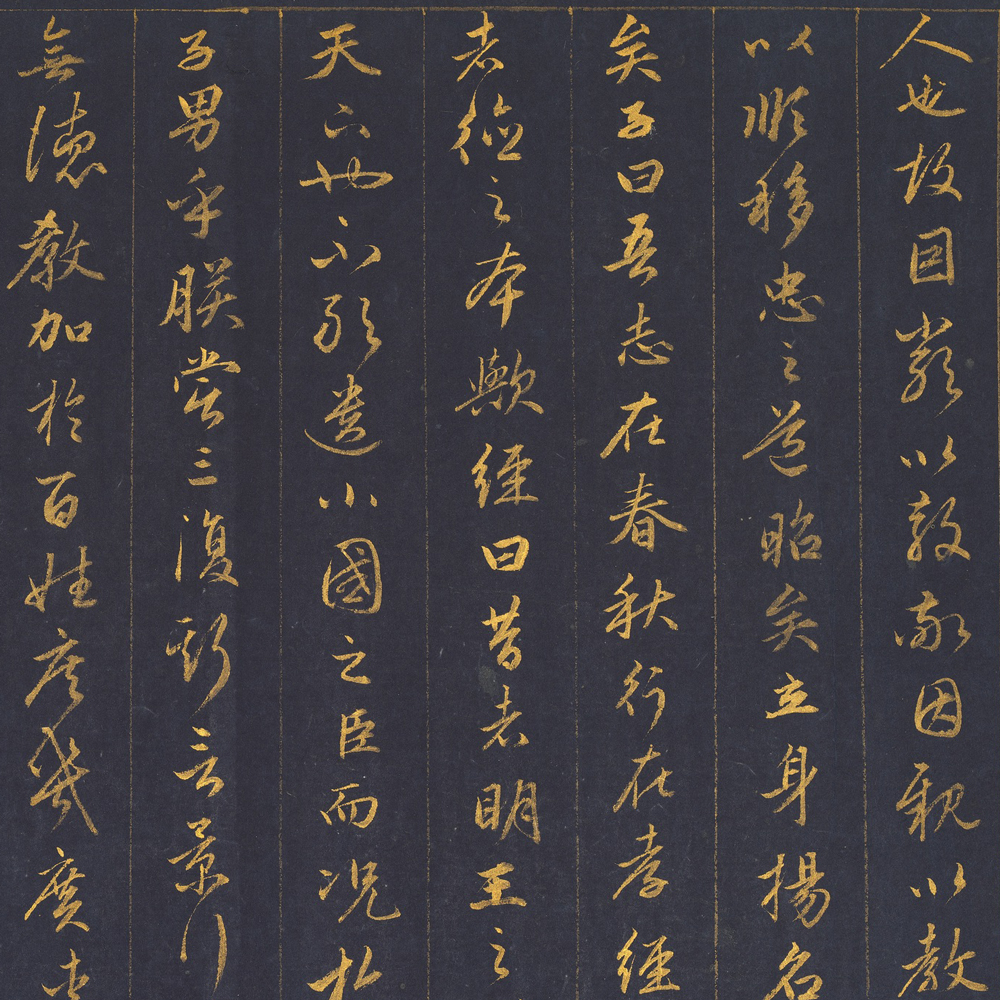 人也故因嚴以教敬因親以教
以順移忠之道昭矣立身揚名
矣子曰吾志在春秋行在孝經
者德之本歟經曰昔者明王之
天下也不敢遺小國之臣而況於
子男乎朕嘗三復斯言景行
無德教加於百姓庶幾廣